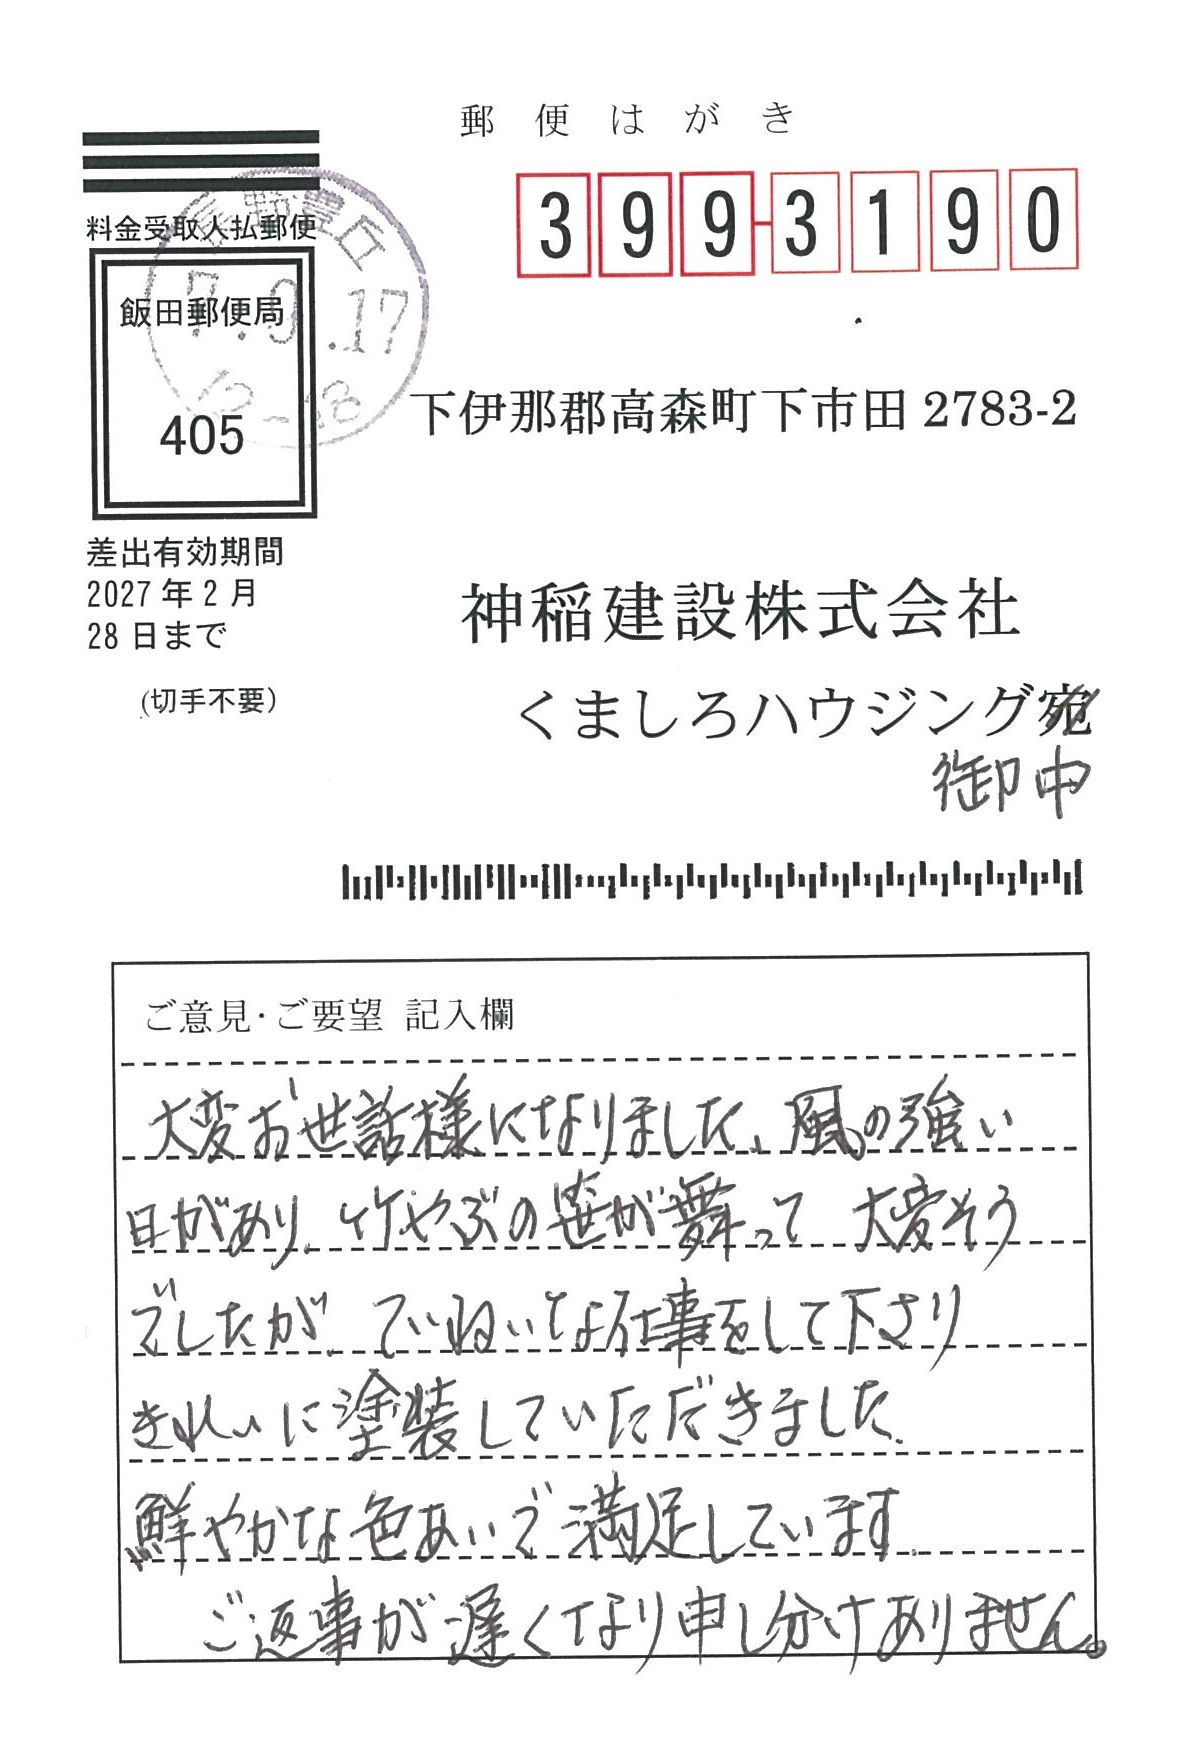 郵便はがき
399-3190
料金受取人払郵便
飯田郵便局
405
長野豊丘
7.9.17
12-18
差出有効期間
2027年2月
28日まで
(切手不要)
下伊那郡高森町下市田2783-2
神稲建設株式会社
くましろハウジング宛
御中
ご意見・ご要望 記入欄
大変お世話様になりました、風の強い
日があり、竹やぶの笹が舞って 大変そう
でしたが、ていねいな仕事をして下さり
きれいに塗装していただきました。
鮮やかな色あいで満足しています。
ご返事が遅くなり申し分けありません。